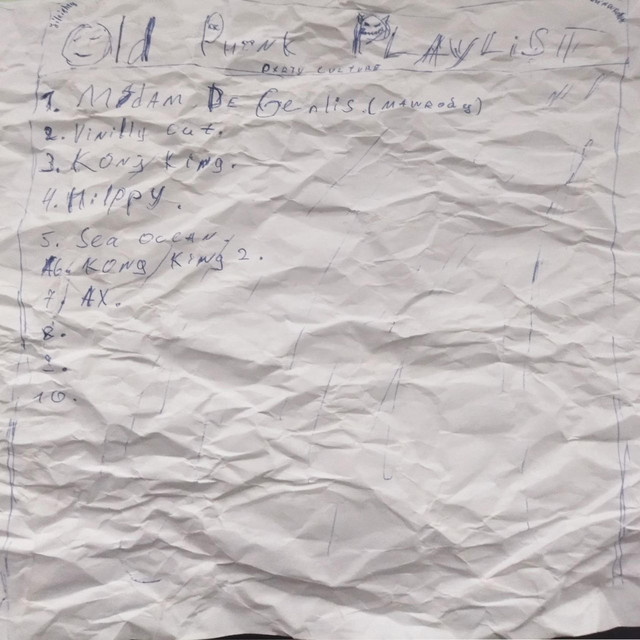 Old Punk PLAYLIST
1. MADAM DE Genlis. (
2. Vinilly cut.
3. KONg King.
4. Hilppy.
5. Sea ocean.
6. KONg King 2.
7. AX.
8.
9.
10.